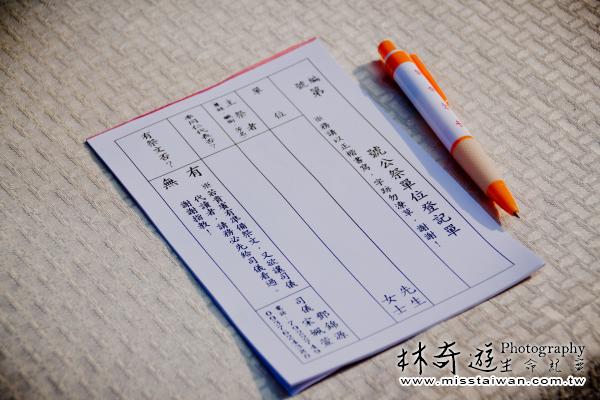 編號 第 號公祭單位登記單
※務請以正楷書寫,字跡勿潦草,謝謝!
單位
主祭者
先生
女士
有祭文否?
有
無
※若貴賓有準備祭文,又欲讓司儀
代讀者,請務必先給司儀看過,
謝謝指教!
司儀
鄧錦源
宋姵萱
電話
林奇遊 Photography
生命紀事
www.misstaiwan.com.tw